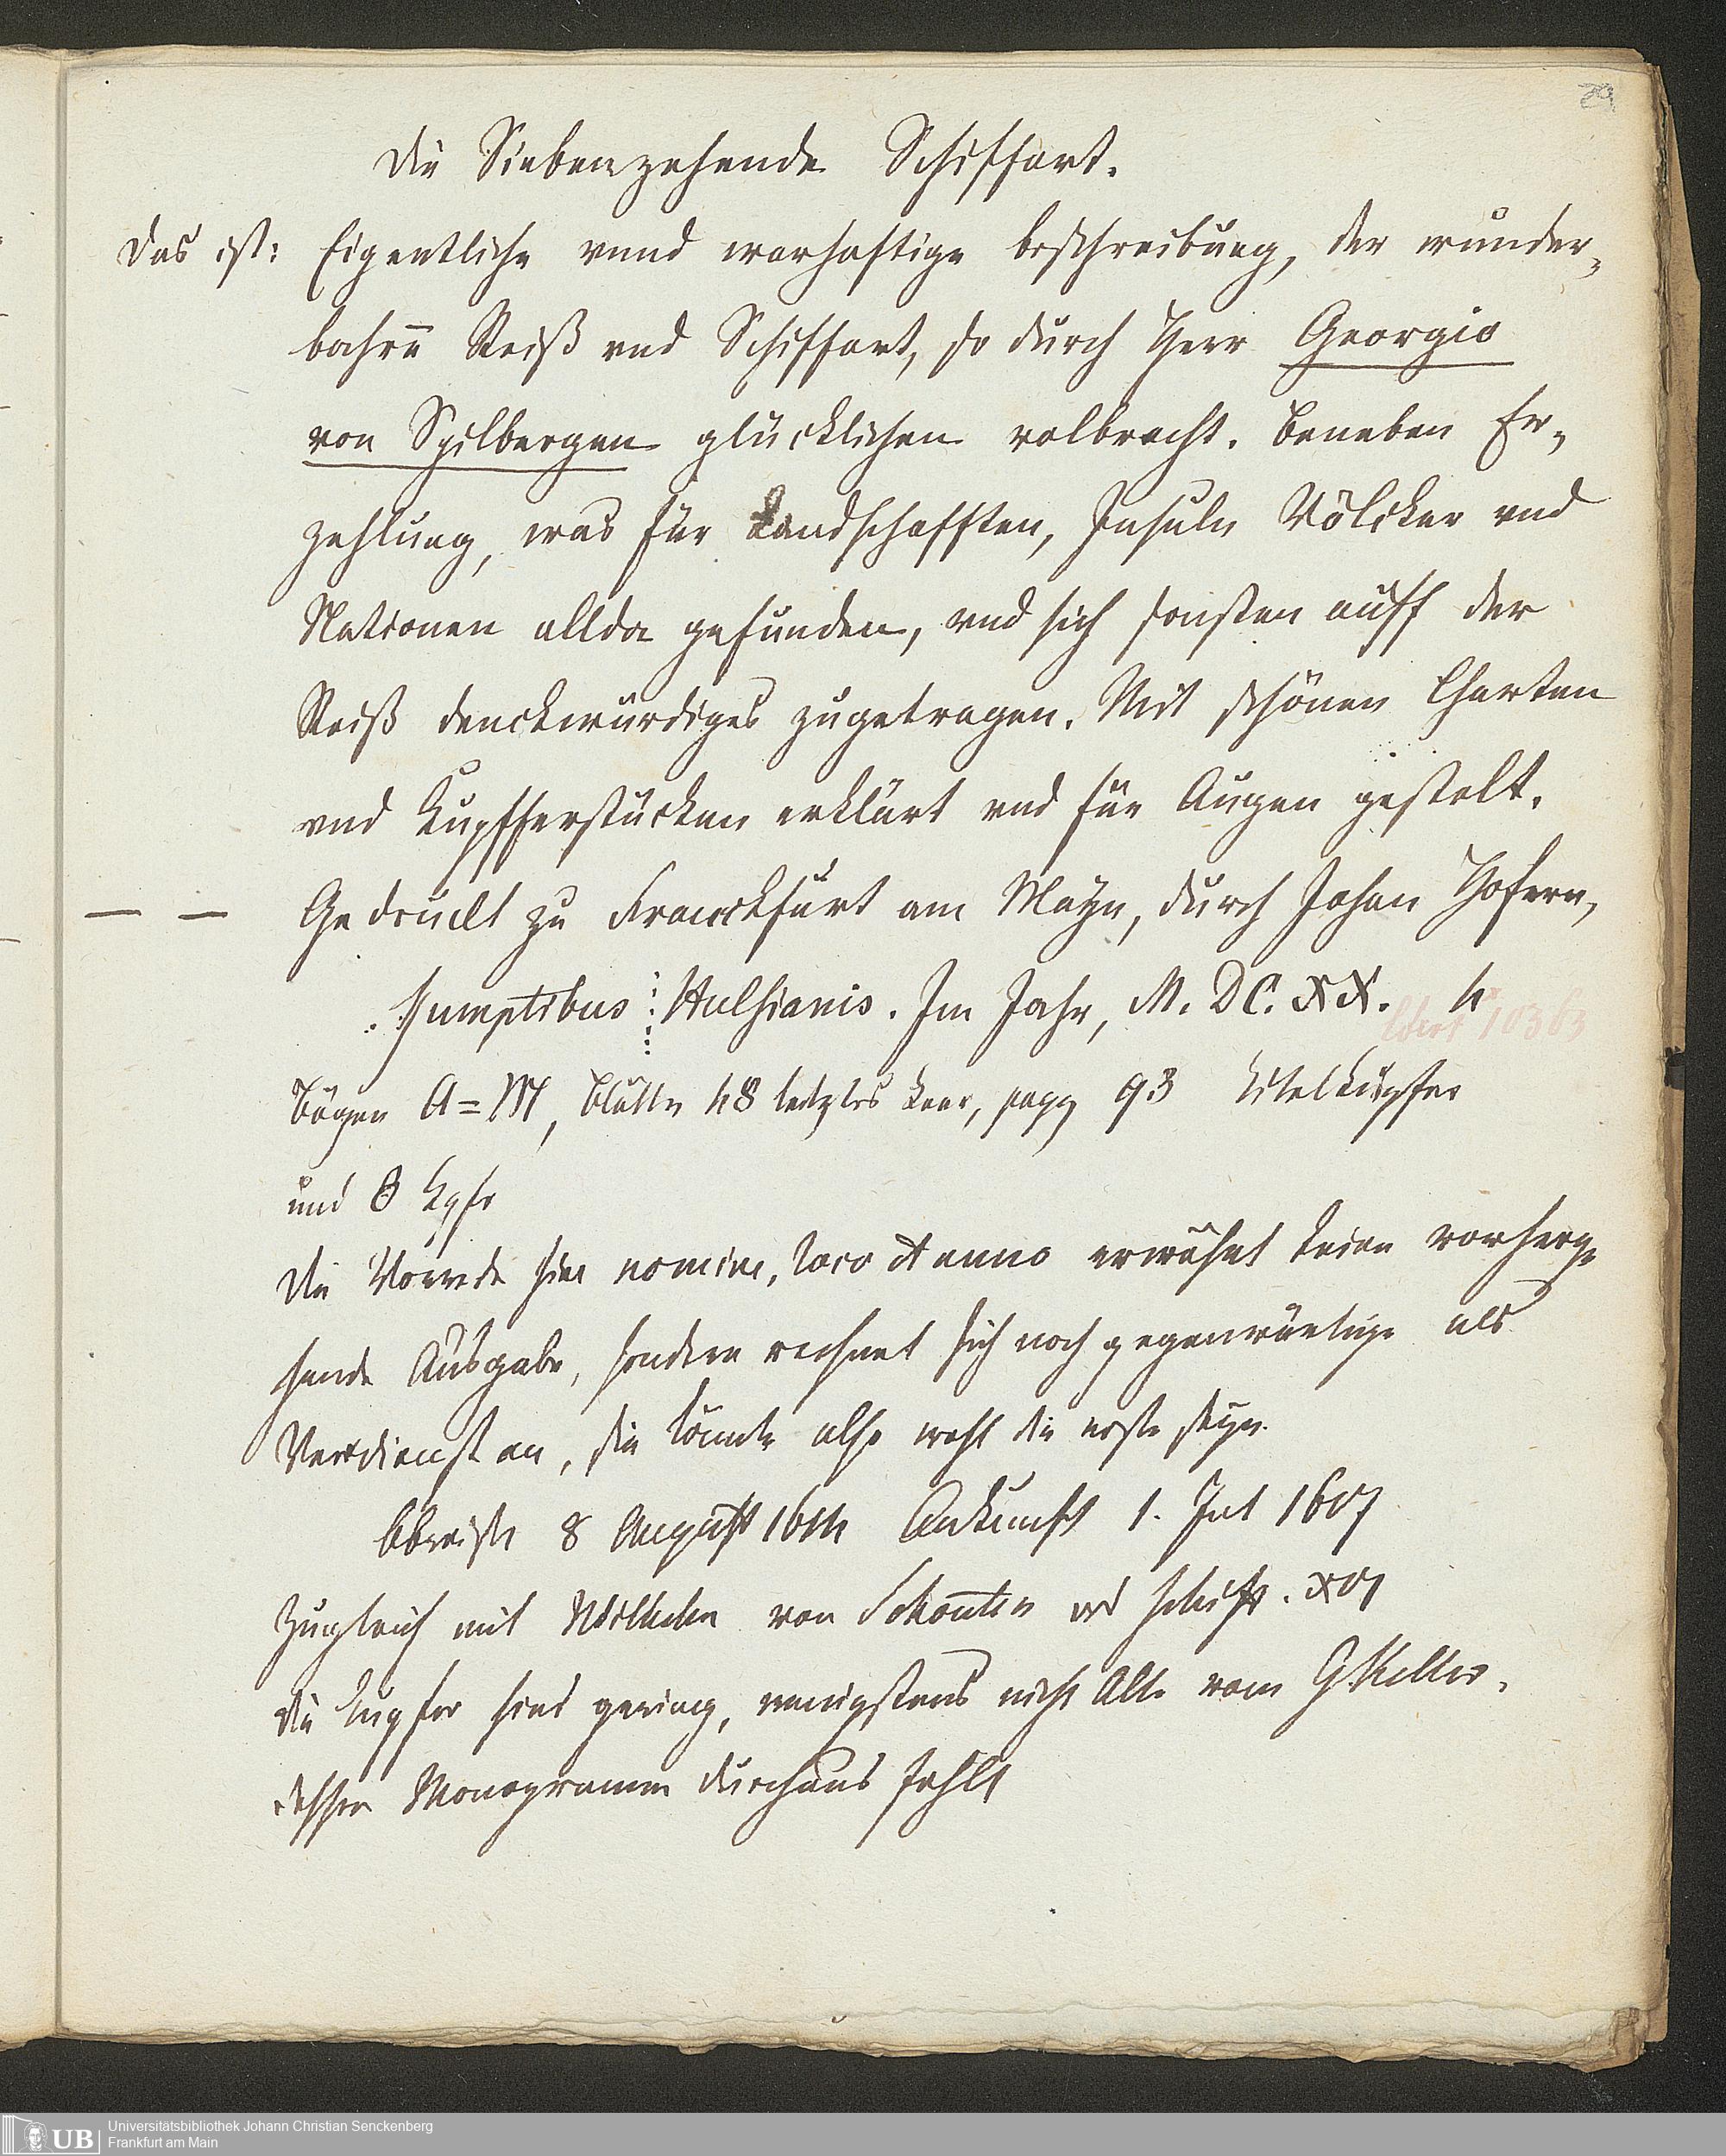 29
Die Siebenzehende Schiffart.
Das ist: Eigentliche vnnd warhafftige beschreibung, der wunder-
bahrn̄ Reiß vnd Schiffart, so durch Herr Georgio
von Spilbergen glücklichen volbracht. Beneben Er-
zehlung, was für Landschafften, Insuln Völcker vnd
Nationen allda gefunden, vnd sich sonsten auff der
Reiß denckwürdiges zugetragen. Mit schönen Charten
vnd Kupfferstücken erklärt vnd für Augen gestelt.
— — Gedruckt zu Franckfurt am Mayn, durch Johan Hofern,
Sumptibus Hulsianis. Im Jahr, M. DC. XX. 4
10363
Bögen A=M, Blätter 48 letztes leer, pagg 93 Titelkupfer
und 8 Kpfr
Die Vorrede sine nomine, loco et anno erwähnt keine vorherge-
hende Ausgabe, sondern rechnet sich noch gegenwärtige als
Verdienst an, sie könnte also wohl die erste seyn.
Abreise 8 August 1614 Ankunft 1. Jul 1617
Zugleich mit Wilhelm von Schouten vid Schiff. XVI
die Kupfer sind gering, wenigstens nicht Alle vom GKeller,
dessen Monogramm durchaus fehlt
UB Universitätsbibliothek Johann Christian Senckenberg
Frankfurt am Main